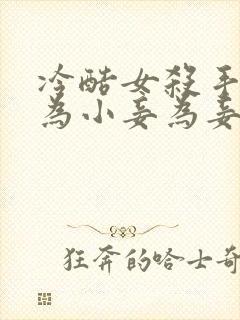 冷酷女殺手
為小妾為妾
狂奔的哈士奇